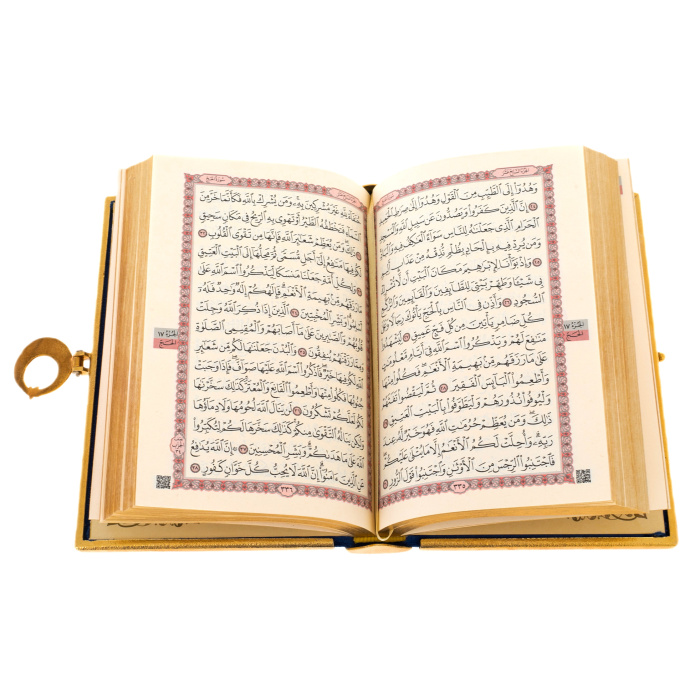 الجزء السابع عشر
وَهُدُوٓا۟ إِلَى ٱلطَّيِّبِ مِنَ ٱلْقَوْلِ وَهُدُوٓا۟ إِلَىٰ صِرَٰطِ
٢٤ إِنَّ ٱلَّذِينَ كَفَرُوا۟ وَيَصُدُّونَ عَن سَبِيلِ ٱللَّهِ
ٱلْحَرَامِ ٱلَّذِى جَعَلْنَٰهُ لِلنَّاسِ سَوَآءً ٱلْعَٰكِفُ فِيهِ
وَمَن يُرِدْ فِيهِ بِإِلْحَادٍۭ بِظُلْمٍ نُّذِقْهُ مِنْ عَذَابٍ
٢٥ وَإِذْ بَوَّأْنَا لِإِبْرَٰهِيمَ مَكَانَ ٱلْبَيْتِ أَن لَّا تُشْرِكْ
بِى شَيْـًٔا وَطَهِّرْ بَيْتِىَ لِلطَّآئِفِينَ وَٱلْقَآئِمِينَ وَٱلرُّكَّعِ
ٱلسُّجُودِ ٢٦ وَأَذِّن فِى ٱلنَّاسِ بِٱلْحَجِّ يَأْتُوكَ رِجَالًا
كُلِّ ضَامِرٍ يَأْتِينَ مِن كُلِّ فَجٍّ عَمِيقٍ ٢٧ لِّيَشْهَدُوا۟
مَنَٰفِعَ لَهُمْ وَيَذْكُرُوا۟ ٱسْمَ ٱللَّهِ فِىٓ أَيَّامٍ مَّعْلُومَٰتٍ
عَلَىٰ مَا رَزَقَهُم مِّنۢ بَهِيمَةِ ٱلْأَنْعَٰمِ فَكُلُوا۟ مِنْهَا
وَأَطْعِمُوا۟ ٱلْبَآئِسَ ٱلْفَقِيرَ ٢٨ ثُمَّ لْيَقْضُوا۟ تَفَثَهُمْ
وَلْيُوفُوا۟ نُذُورَهُمْ وَلْيَطَّوَّفُوا۟ بِٱلْبَيْتِ ٱلْعَتِيقِ
ذَٰلِكَ وَمَن يُعَظِّمْ حُرُمَٰتِ ٱللَّهِ فَهُوَ خَيْرٌ لَّهُۥ عِندَ
رَبِّهِۦ وَأُحِلَّتْ لَكُمُ ٱلْأَنْعَٰمُ إِلَّا مَا يُتْلَىٰ عَلَيْكُمْ
فَٱجْتَنِبُوا۟ ٱلرِّجْسَ مِنَ ٱلْأَوْثَٰنِ وَٱجْتَنِبُوا۟ قَوْلَ ٱلزُّورِ
٣٣٥
الجزء ١٧
الحج
سورة الحج
حُنَفَآءَ لِلَّهِ غَيْرَ مُشْرِكِينَ بِهِۦ وَمَن يُشْرِكْ بِٱللَّهِ فَكَأَنَّمَا خَرَّ مِنَ
ٱلسَّمَآءِ فَتَخْطَفُهُ ٱلطَّيْرُ أَوْ تَهْوِى بِهِ ٱلرِّيحُ فِى مَكَانٍ سَحِيقٍ
ذَٰلِكَ وَمَن يُعَظِّمْ شَعَٰٓئِرَ ٱللَّهِ فَإِنَّهَا مِن تَقْوَى ٱلْقُلُوبِ ٣٢
لَكُمْ فِيهَا مَنَٰفِعُ إِلَىٰٓ أَجَلٍ مُّسَمًّى ثُمَّ مَحِلُّهَآ إِلَى ٱلْبَيْتِ ٱلْعَتِيقِ
وَلِكُلِّ أُمَّةٍ جَعَلْنَا مَنسَكًا لِّيَذْكُرُوا۟ ٱسْمَ ٱللَّهِ عَلَىٰ
مَا رَزَقَهُم مِّنۢ بَهِيمَةِ ٱلْأَنْعَٰمِ فَإِلَٰهُكُمْ إِلَٰهٌ وَٰحِدٌ فَلَهُۥٓ
أَسْلِمُوا۟ وَبَشِّرِ ٱلْمُخْبِتِينَ ٣٤ ٱلَّذِينَ إِذَا ذُكِرَ ٱللَّهُ وَجِلَتْ
قُلُوبُهُمْ وَٱلصَّٰبِرِينَ عَلَىٰ مَآ أَصَابَهُمْ وَٱلْمُقِيمِى ٱلصَّلَوٰةِ
وَمِمَّا رَزَقْنَٰهُمْ يُنفِقُونَ ٣٥ وَٱلْبُدْنَ جَعَلْنَٰهَا لَكُم مِّن شَعَٰٓئِرِ
ٱللَّهِ لَكُمْ فِيهَا خَيْرٌ فَٱذْكُرُوا۟ ٱسْمَ ٱللَّهِ عَلَيْهَا صَوَآفَّ فَإِذَا وَجَبَتْ
جُنُوبُهَا فَكُلُوا۟ مِنْهَا وَأَطْعِمُوا۟ ٱلْقَانِعَ وَٱلْمُعْتَرَّ كَذَٰلِكَ سَخَّرْنَٰهَا
لَكُمْ لَعَلَّكُمْ تَشْكُرُونَ ٣٦ لَن يَنَالَ ٱللَّهَ لُحُومُهَا وَلَا دِمَآؤُهَا
وَلَٰكِن يَنَالُهُ ٱلتَّقْوَىٰ مِنكُمْ كَذَٰلِكَ سَخَّرَهَا لَكُمْ لِتُكَبِّرُوا۟
ٱللَّهَ عَلَىٰ مَا هَدَىٰكُمْ وَبَشِّرِ ٱلْمُحْسِنِينَ ٣٧ إِنَّ ٱللَّهَ يُدَٰفِعُ
عَنِ ٱلَّذِينَ ءَامَنُوٓا۟ إِنَّ ٱللَّهَ لَا يُحِبُّ كُلَّ خَوَّانٍ كَفُورٍ ٣٨
٣٣٦
الجزء ١٧
الحج